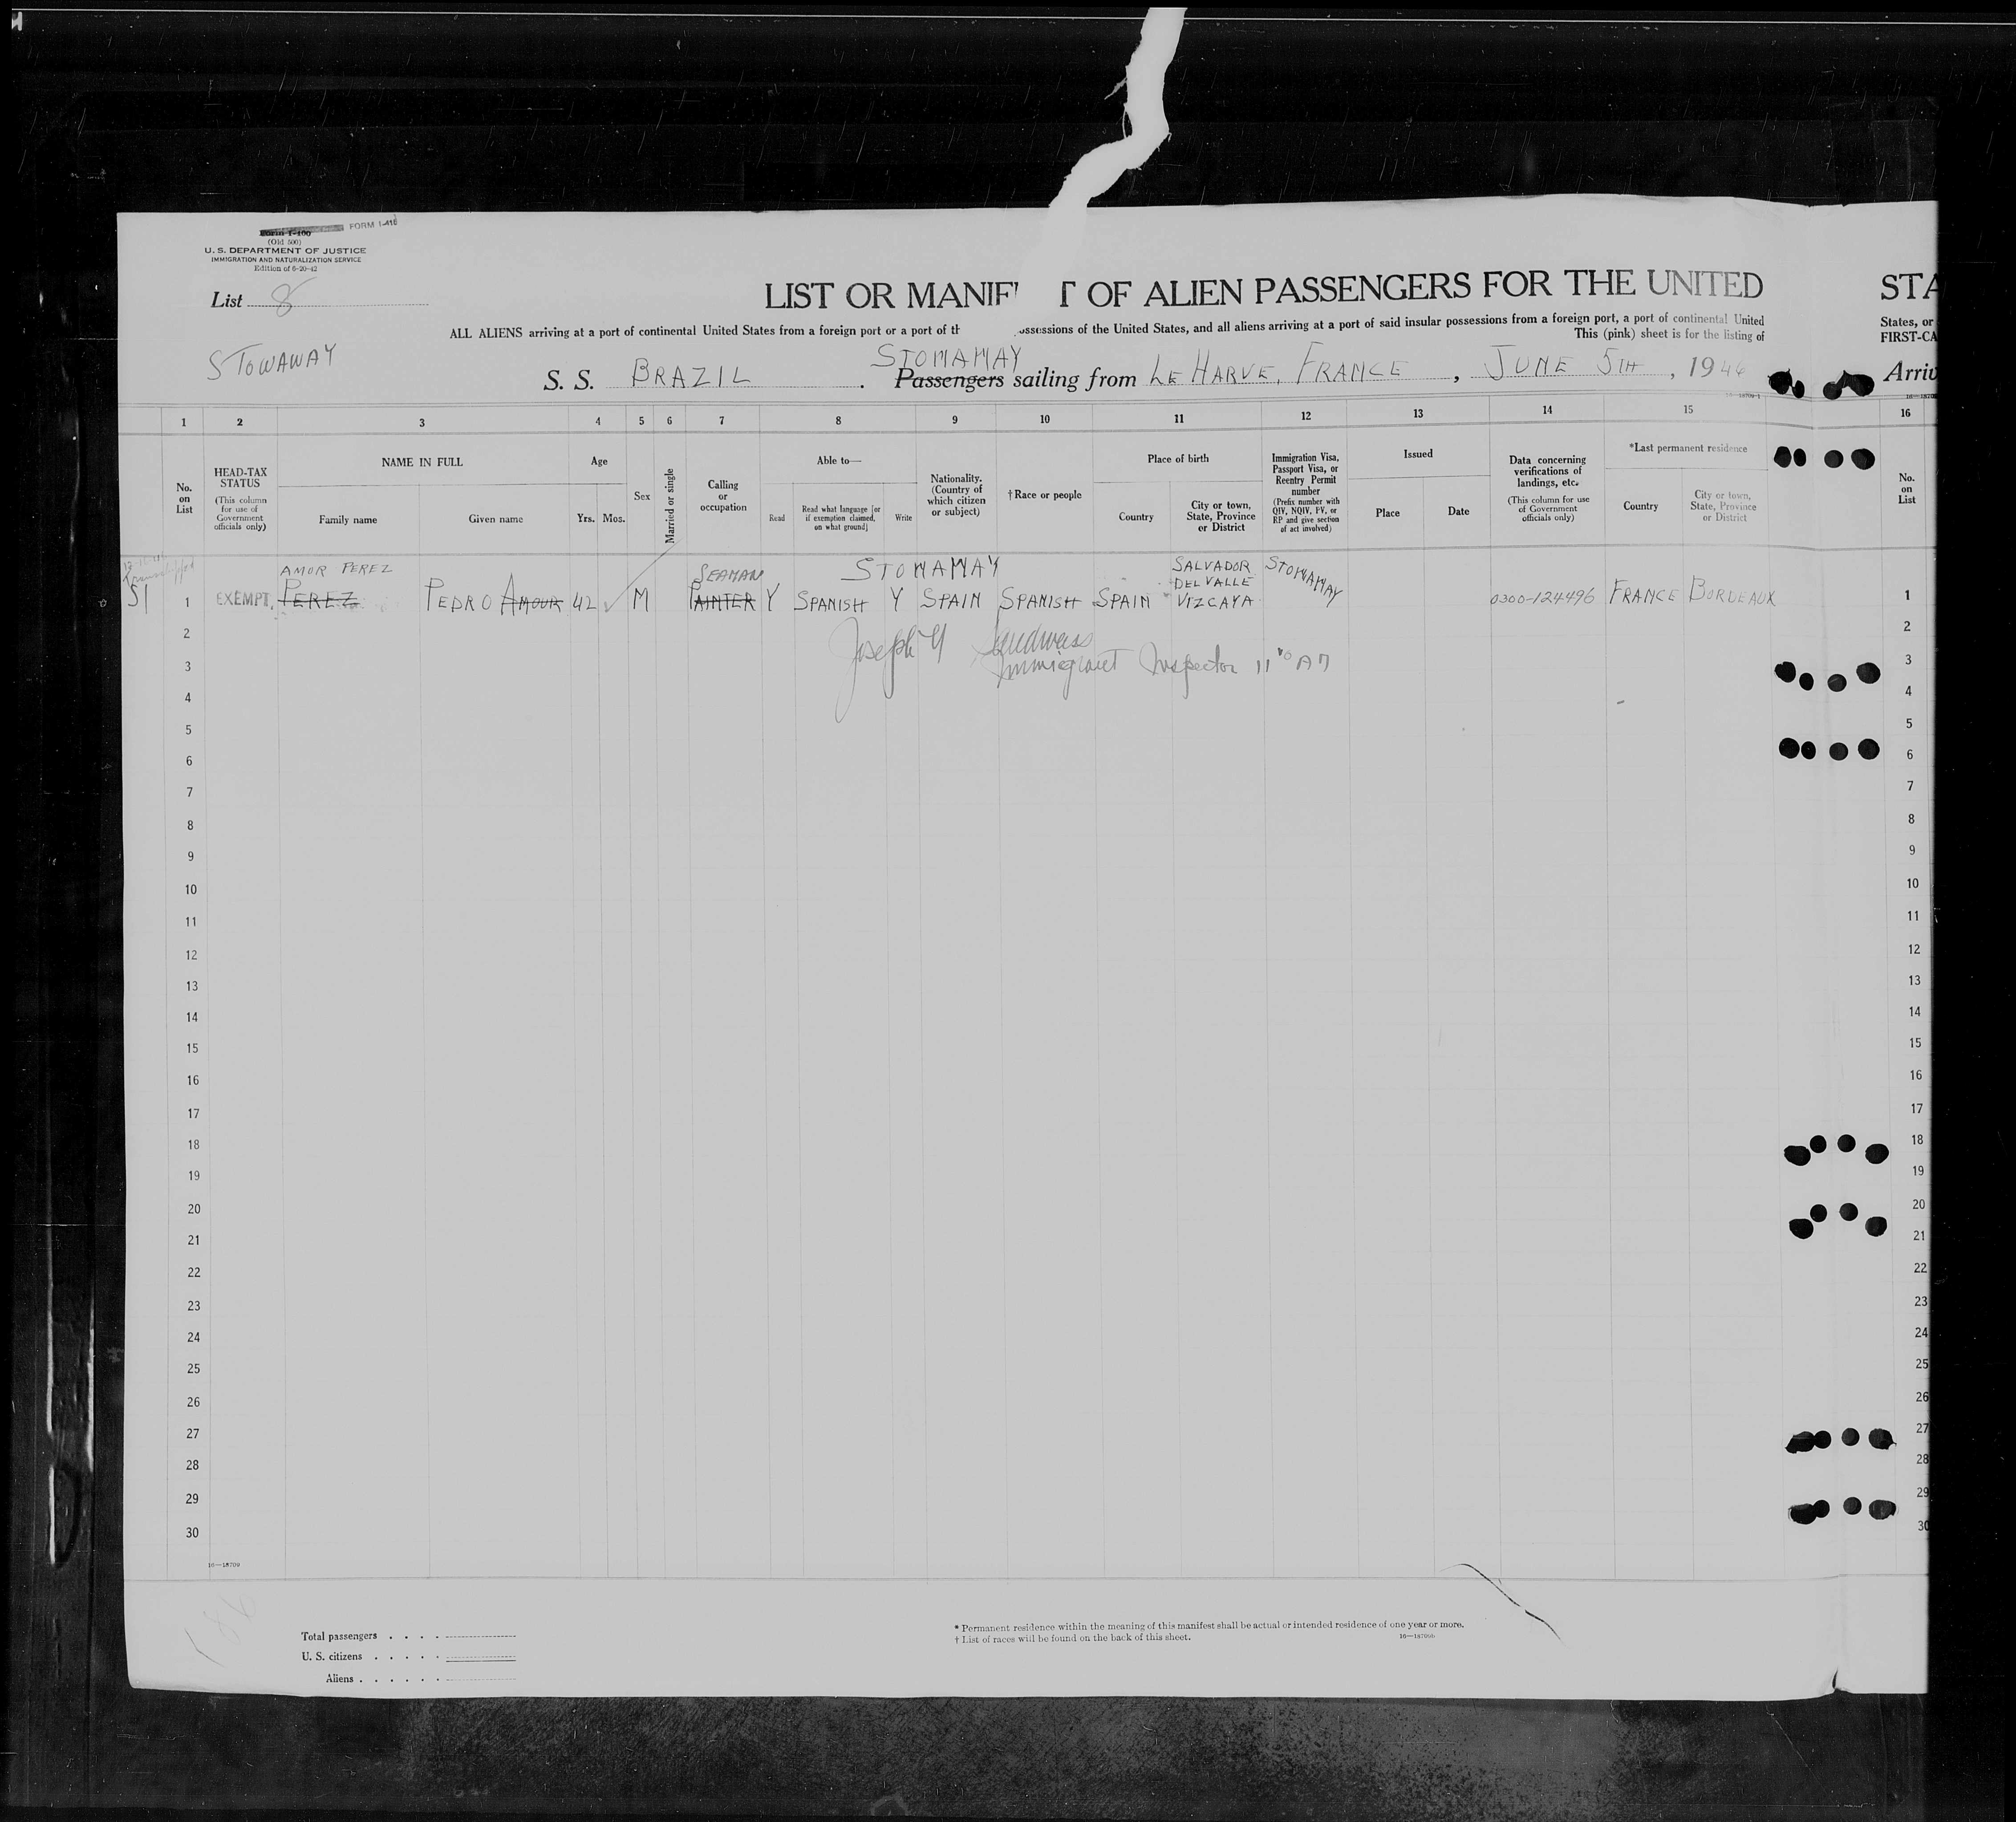 Form I-100 FORM I-416
(Old 500)
U. S. DEPARTMENT OF JUSTICE
IMMIGRATION AND NATURALIZATION SERVICE
Edition of 6-20-42
List 8
LIST OR MANIF T OF ALIEN PASSENGERS FOR THE UNITED STA
ALL ALIENS arriving at a port of continental United States from a foreign port or a port of th ossessions of the United States, and all aliens arriving at a port of said insular possessions from a foreign port, a port of continental United States, or
This (pink) sheet is for the listing of FIRST-CA
STOWAWAY
STOWAWAY
S. S. BRAZIL . Passengers sailing from LE HARVE, FRANCE , JUNE 5TH , 1946 Arriv
16—18709-1
1 2 3 4 5 6 7 8 9 10 11 12 13 14 15 16
No. on List
HEAD-TAX STATUS
(This column for use of Government officials only)
NAME IN FULL
Family name
Given name
Age
Yrs. Mos.
Sex
Married or single
Calling or occupation
Able to—
Read
Read what language [or if exemption claimed, on what ground]
Write
Nationality. (Country of which citizen or subject)
† Race or people
Place of birth
Country
City or town, State, Province or District
Immigration Visa, Passport Visa, or Reentry Permit number
(Prefix number with QIV, NQIV, PV, or RP and give section of act involved)
Issued
Place
Date
Data concerning verifications of landings, etc.
(This column for use of Government officials only)
*Last permanent residence
Country
City or town, State, Province or District
No. on List
AMOR PEREZ SEAMAN STOWAWAY SALVADOR DEL VALLE STOWAWAY
51 1 EXEMPT. PEREZ PEDRO AMOUR 42 M PAINTER Y SPANISH Y SPAIN SPANISH SPAIN VIZCAYA 0300-124496 FRANCE BORDEAUX 1
2 Joseph 2
3 Immigrant Inspector 3
4 4
5 5
6 6
7 7
8 8
9 9
10 10
11 11
12 12
13 13
14 14
15 15
16 16
17 17
18 18
19 19
20 20
21 21
22 22
23 23
24 24
25 25
26 26
27 27
28 28
29 29
30 30
16—18709
Total passengers . . . .
U. S. citizens . . . . .
Aliens . . . . . .
* Permanent residence within the meaning of this manifest shall be actual or intended residence of one year or more.
† List of races will be found on the back of this sheet.